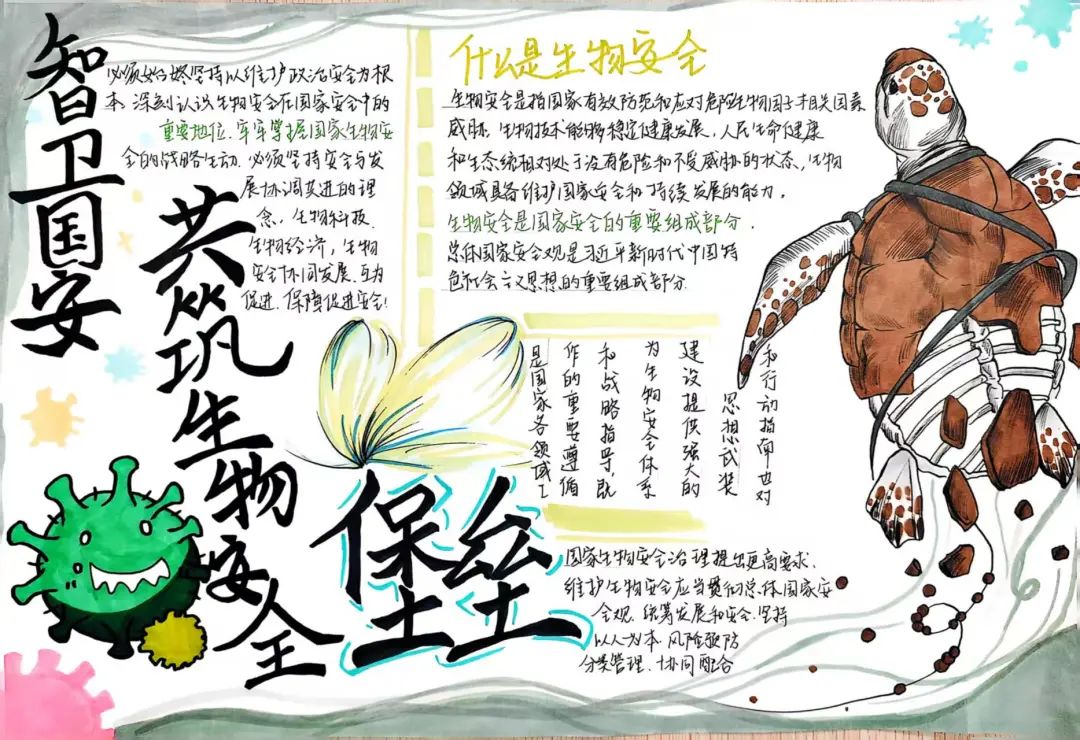 智卫国安
共筑生物安全
保垒
必须始终坚持以维护政治安全为根
本.深刻认识生物安全在国家安全中的
重要地位.牢牢掌握国家生物安
全的战略主动.必须坚持安全与发
展协调共进的理
念，生物科技.
生物经济，生物
安全协同发展.互为
促进.保障促进安全!
什么是生物安全
生物安全是指国家有效防范和应对危险生物因子相关因素
威胁.生物技术能够稳定健康发展.人民生命健康
和生态统相对处于没有危险和不受威胁的状态，生物
领域具备维护国家安全和持续发展的能力.
生物安全是国家安全的重要组成部分.
总体国家安全观是习近平新时代中国特
色社会主义思想的重要组成部分.
和行动指南也对
思想武装
建设提供强大的
为生物安全体系
和战略指导.既
作的重要遵循
是国家各领域工
国家生物安全治理提出更高要求.
维护生物安全应当贯彻总体国家安
全观.统筹发展和安全.坚持
以人为本.风险预防
分类管理.协同配合